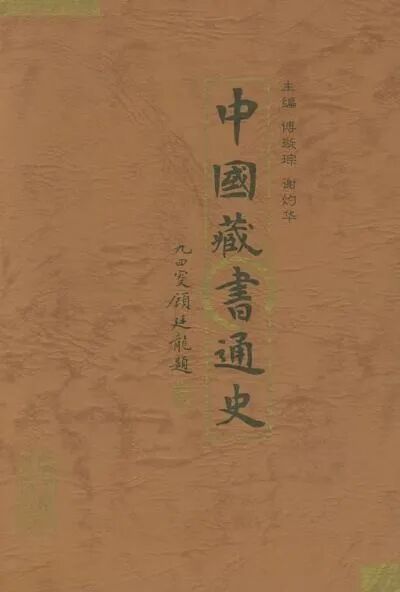 主编 傅璇琮 谢灼华
中國藏書通史
九四叟顧廷龍題